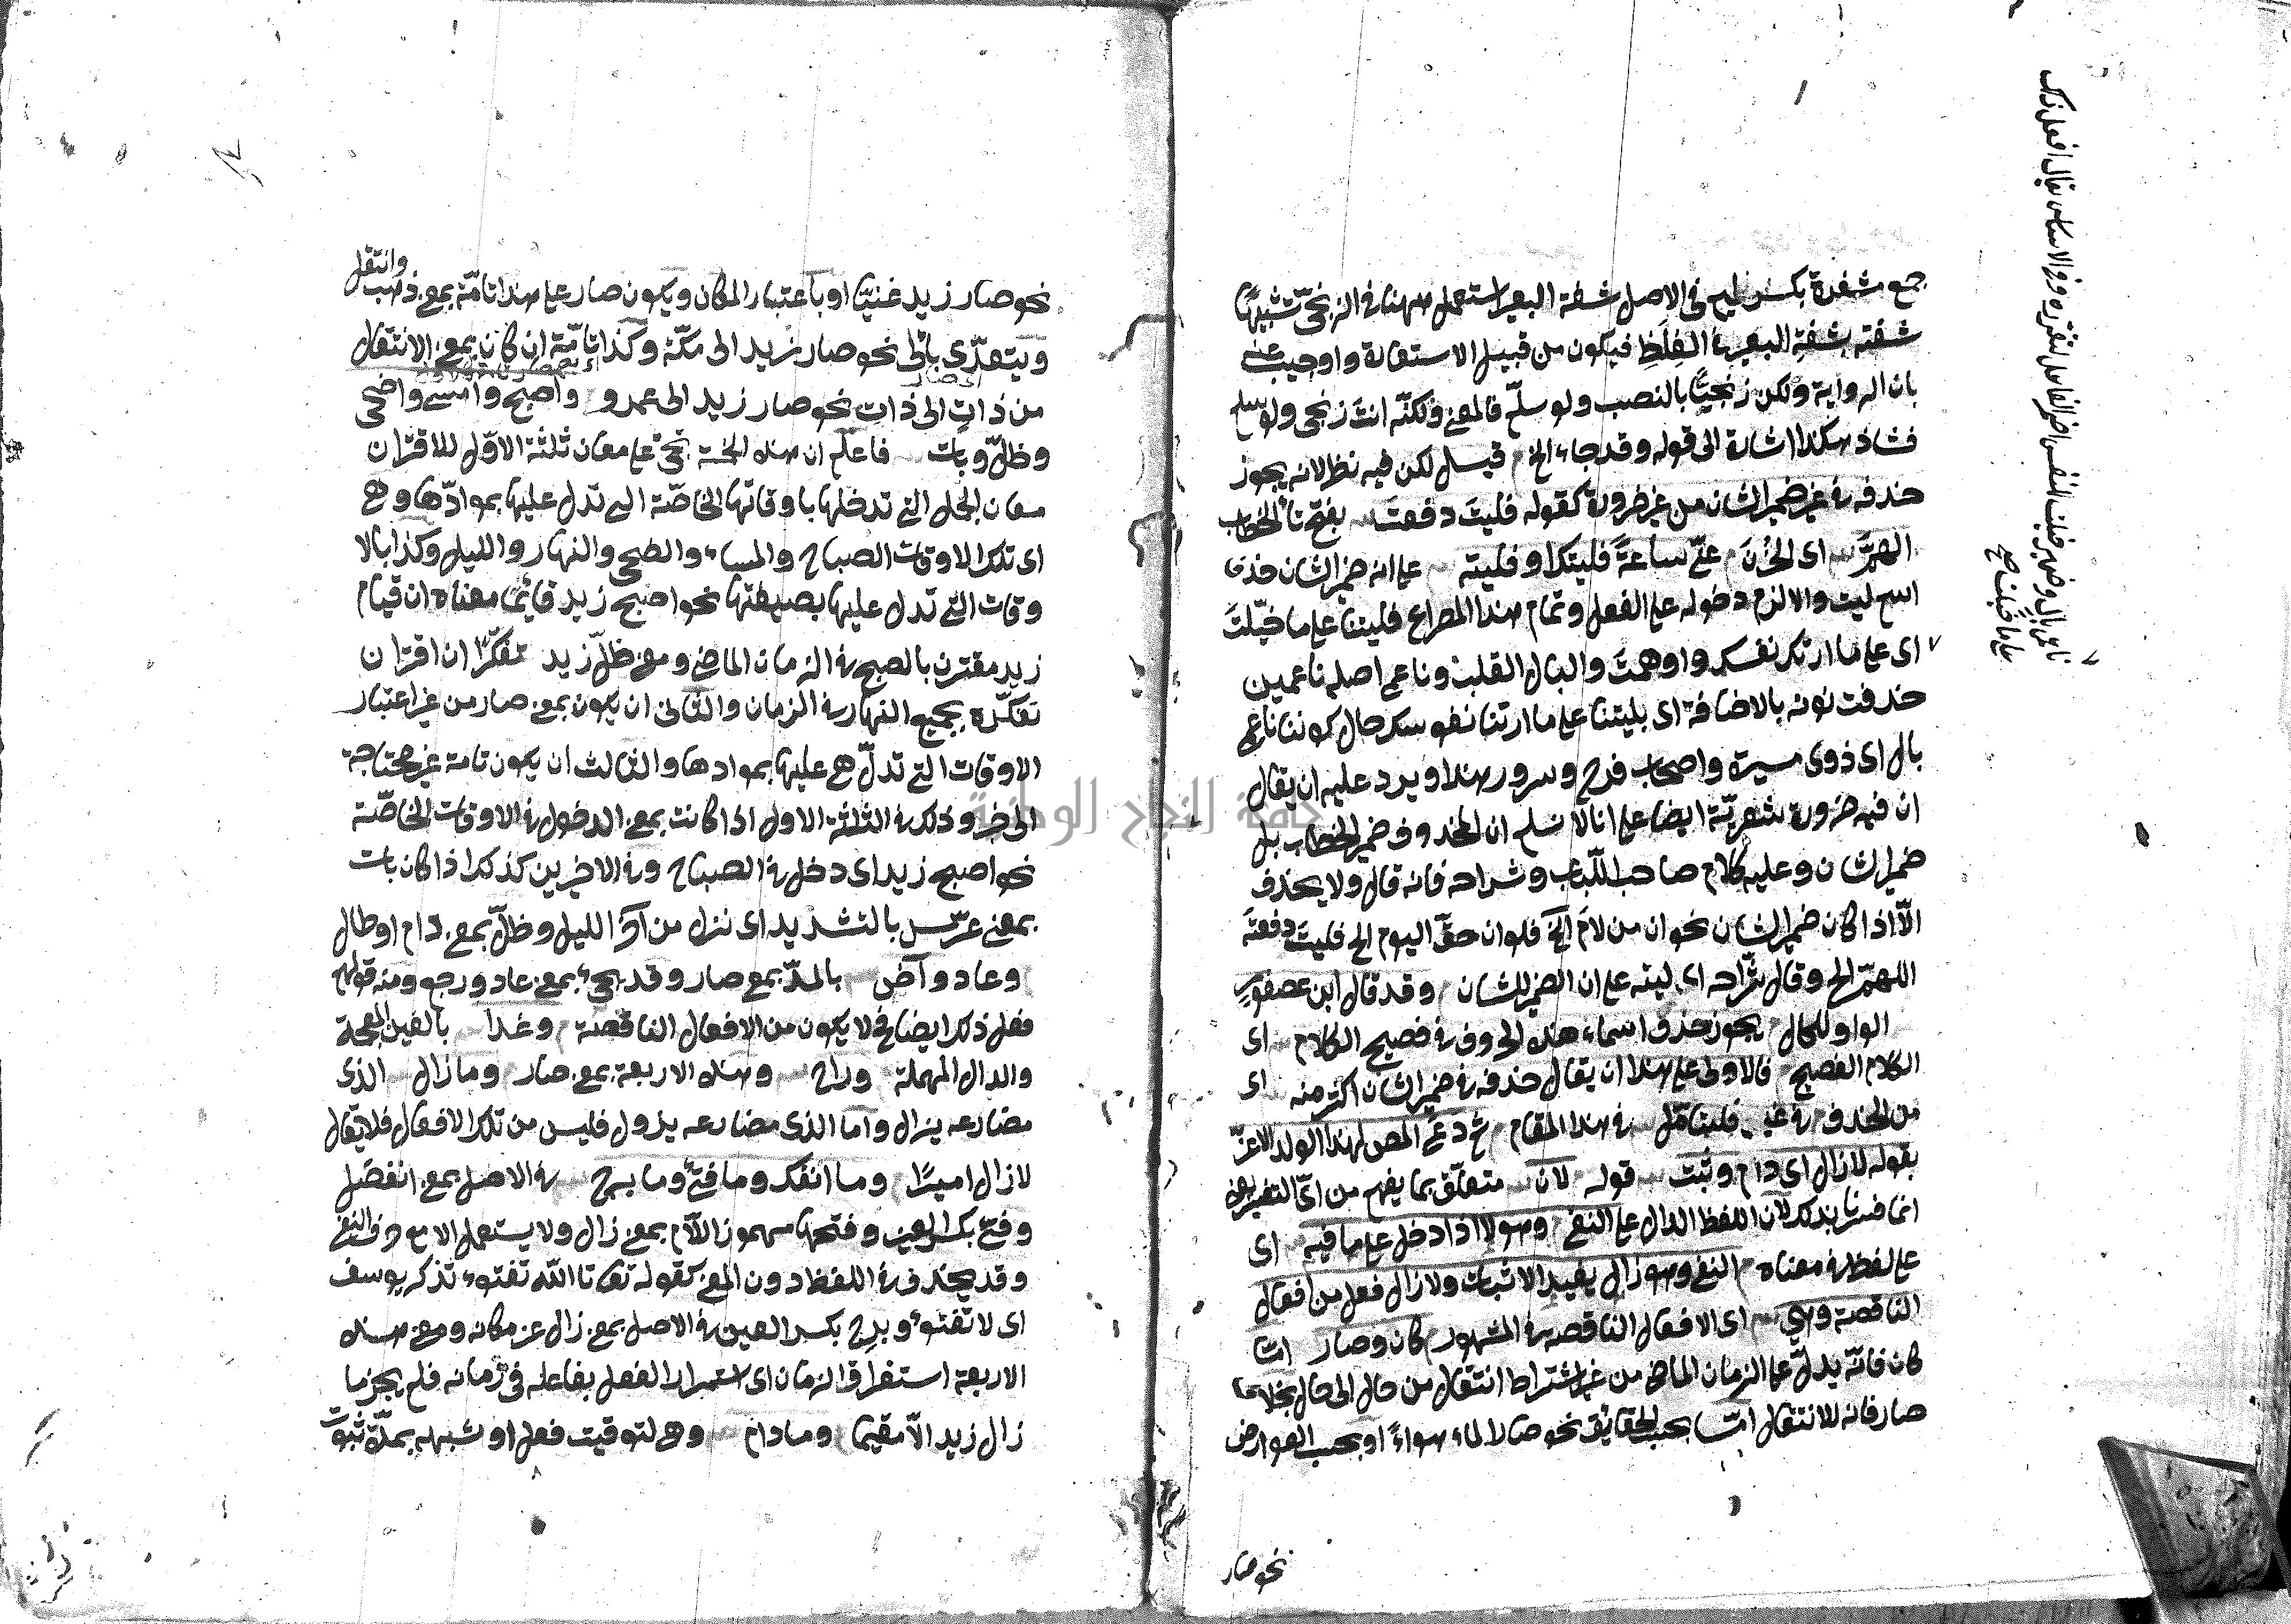 جمع مشفرة بكسر الميم فى الاصل شفة البعير استعمل ههنا فى الزنجىّ تشبيهًا
شفته بشفة البعير فى الغِلَظِ فيكون من قبيل الاستعارة واوجيب عنه
بان الرواية ولكن زنجيًّا بالنصب ولو سلّم فالمعنى ولكنّه انتَ زنجى ولو سلم
فشاذ هكذا اشارة الى قوله وقد جاء الخ قيل لكن فيه نظر لانه يجوز
حذفه فى غير ضمير الشان من غير ضرورة كقوله فليتَ دفعتَ بفتح تاء الخطاب
الهمَّ اى الحُزنَ عنّى ساعةً فليتك او فليته على انه ضمير الشان حذف
اسم ليت والا لزم دخوله على الفعل وتمام هذا المصراع فليتنا على ما خيّلتَ
اى على ما ارتك نفسك واوهمتَ والبال القلب وناعمى اصله ناعمين
حذفت نونه بالاضافة اى بليتنا على ما ارتنا نفوسك حال كوننا ناعمى
بال اى ذوى مسيرة واصحاب فرح وسرور هذا ويرد عليه ان يقال
ان فيه ضرورة شعريّة ايضا على انا لا نسلم ان المحذوف ضمير الخطاب بل
ضمير الشان وعليه كلام صاحب اللّباب وشراحه فانه قال ولا يحذف
الّا اذا كان ضمير الشان نحو ان من لامَ الخ فلو ان حقَّ اليوم الخ فليتَ دفعتَ
اللهمّ الخ وقال شرّاحه اى ليته على ان الضمير للشان وقد قال ابن عصفور
الواو للحال يجوز حذف اسماء هذه الحروف فى فصيح الكلام اى
الكلام الفصيح فالاولى على هذا ان يقال حذفه فى ضمير الشان اكثر منه اى
من الحذف فى غيره فليتامّل فى هذا المقام ثم دعى المصـ لهذا الولد الاعزّ
بقوله لا زال اى دام وثبت قوله لان متعلّق بما يفهم من اىّ التفسير يعنى
انما فسرنا بذلك لان اللفظ الدال على النفى وهو لا اذا دخل على ما فيه اى
على لفظ فى معناه النفى وهو زال يفيد الاثبات ولا زال فعل من افعال
الناقصة وهى اى الافعال الناقصة فى المشهور كان وصار امّا
كان فانّه يدلّ على الزمان الماضى من غير اشتراط انتقال من حال الى حال بخلاف
صار فانه للانتقال امّا بحسب الحقايق نحو صار الماء هواءً او بحسب العوارض
نحو صار
على ما خيلت صح
نحو صار زيد غنيّا او باعتبار المكان ويكون صار على هذا تامّة بمعنى ذهب وانتقل
ويتعدّى بالى نحو صار زيد الى مكّة وكذا تامّة ان كان بمعنى الانتقال
من ذاتٍ الى ذاتٍ نحو صار زيد الى عمرو واصبح وامسى واضحى
وظلّ وبات فاعلم ان هذه الخمسة تجئ على معان ثلثة الاوّل للاقتران
معان الجمل التى تدخلها باوقاتها الخاصّة التى تدل عليها بموادّها وهى
اى تلك الاوقات الصباح والمساء والضحى والنهار والليل وكذا بالا
وقات التى تدل عليها بصيغتها نحو اصبح زيد قائمًا معناه ان قيام
زيد مقترن بالصبح فى الزمان الماضى ومعنى ظلّ زيد تفكّرا ان اقتران
تفكّره بجميع النهار فى الزمان والثانى ان يكون بمعنى صار من غير اعتبار
الاوقات التى تدلّ هى عليها بموادها والثالث ان يكون تامة غير محتاجة
الى خبر وذلك فى الثلثة الاول اذا كانت بمعنى الدخول فى الاوقات الخاصّة
نحو اصبح زيد اى دخل فى الصباح وفى الاخيرين كذلك اذا كان بات
بمعنى عرّس بالتشديد اى نزل من آخر الليل وظلّ بمعنى دام او طال
وعاد وآض بالمدّ بمعنى صار وقد يجئ بمعنى عاد ورجع ومنه قولهم
فعل ذلك ايضا فح لا يكون من الافعال الناقصة وغدا بالغين المعجمة
والدال المهملة وراح وهذه الاربعة بمعنى صار وما زال الذى
مضارعه يزال واما الذى مضارعه يزول فليس من تلك الافعال فلا يقال
لا زال اميرًا وما انفك وما فتئ وما برح فى الاصل بمعنى انفصل
وفتئ بكسر العين وفتحها مهموز اللام بمعنى زال ولا يستعمل الا مع حرف النفى
وقد يحذف فى اللفظ دون المعنى كقوله تعالى تا الله تفتوء تذكر يوسف
اى لا تفتوء وبرِح بكسر العين فى الاصل بمعنى زال عن مكانه ومعنى هذه
الاربعة استغراق الزمان اى استمرار الفعل بفاعله فى زمانه فلم يجز ما
زال زيد الّا مقيما وما دام وهى لتوقيت فعل او شبهه بمدّة ثبوت
جامعة النجاح الوطنية